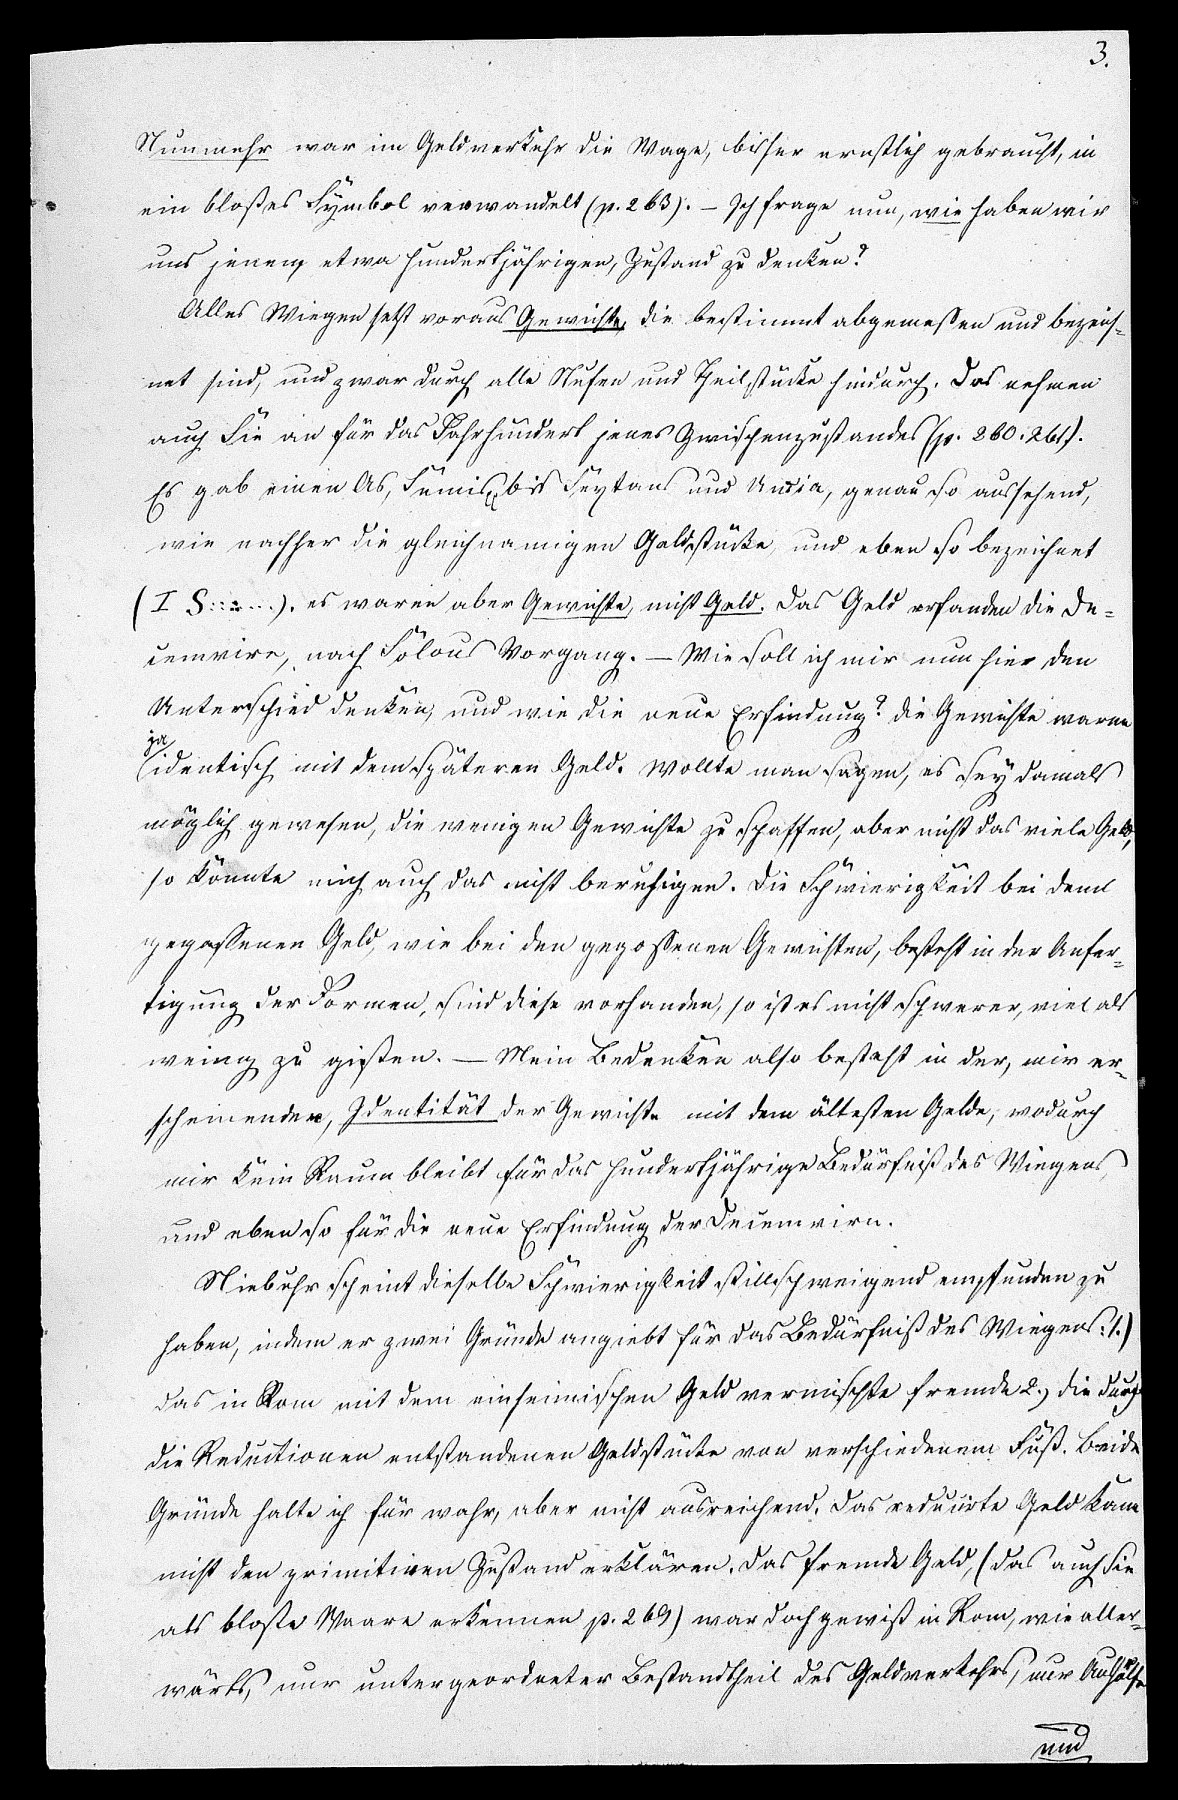 3.
Nunmehr war im Geldverkehr die Wage, bisher ernstlich gebraucht, in
ein bloßes Symbol verwandelt (p. 263). – Ich frage nun, wie haben wir
uns jenen, etwa hundertjährigen, Zustand zu denken?
Alles Wiegen setzt voraus Gewichte, die bestimmt abgemessen und bezeich-
net sind, und zwar durch alle Stufen und Theilstücke hindurch. Das nehmen
auch Sie an für das Jahrhundert jenes Zwischenzustandes (p. 260. 261).
Es gab einen As, Semis, bis Sextans und Uncia, genau so aussehend,
wie nachher die gleichnamigen Geldstücke, und eben so bezeichnet
(I S :: ∴ : .). es waren aber Gewichte, nicht Geld. Das Geld erfanden die De-
cemvirn, nach Solons Vorgang. – Wie soll ich mir nun hier den
Unterschied denken, und wie die neue Erfindung? die Gewichte waren
ja
identisch mit dem späteren Geld. Wollte man sagen, es sey damals
möglich gewesen, die wenigen Gewichte zu schaffen, aber nicht das viele Geld,
so könnte mich auch das nicht beruhigen. Die Schwierigkeit bei dem
gegossenen Geld, wie bei den gegossenen Gewichten, besteht in der Anfer-
tigung der Formen, sind diese vorhanden, so ist es nicht schwerer, viel als
wenig zu gießen. – Mein Bedenken also besteht in der, mir er-
scheinenden, Identität der Gewichte mit dem ältesten Gelde, wodurch
mir kein Raum bleibt für das hundertjährige Bedürfniß des Wiegens,
und eben so für die neue Erfindung der Decemvirn.
Niebuhr scheint dieselbe Schwierigkeit stillschweigend empfunden zu
haben, indem er zwei Gründe angiebt für das Bedürfniß des Wiegens: 1.)
das in Rom mit dem einheimischen Geld vermischte fremde 2.) die durch
die Reductionen entstandenen Geldstücke von verschiedenem Fuß. Beide
Gründe halte ich für wahr, aber nicht ausreichend. Das reducirte Geld kann
nicht den primitiven Zustand erklären. Das fremde Geld, (das auch Sie
als bloße Waare erkennen p. 269) war doch gewiß in Rom, wie aller-
wärts, nur untergeordneter Bestandtheil des Geldverkehrs, nur Aushülfe
und